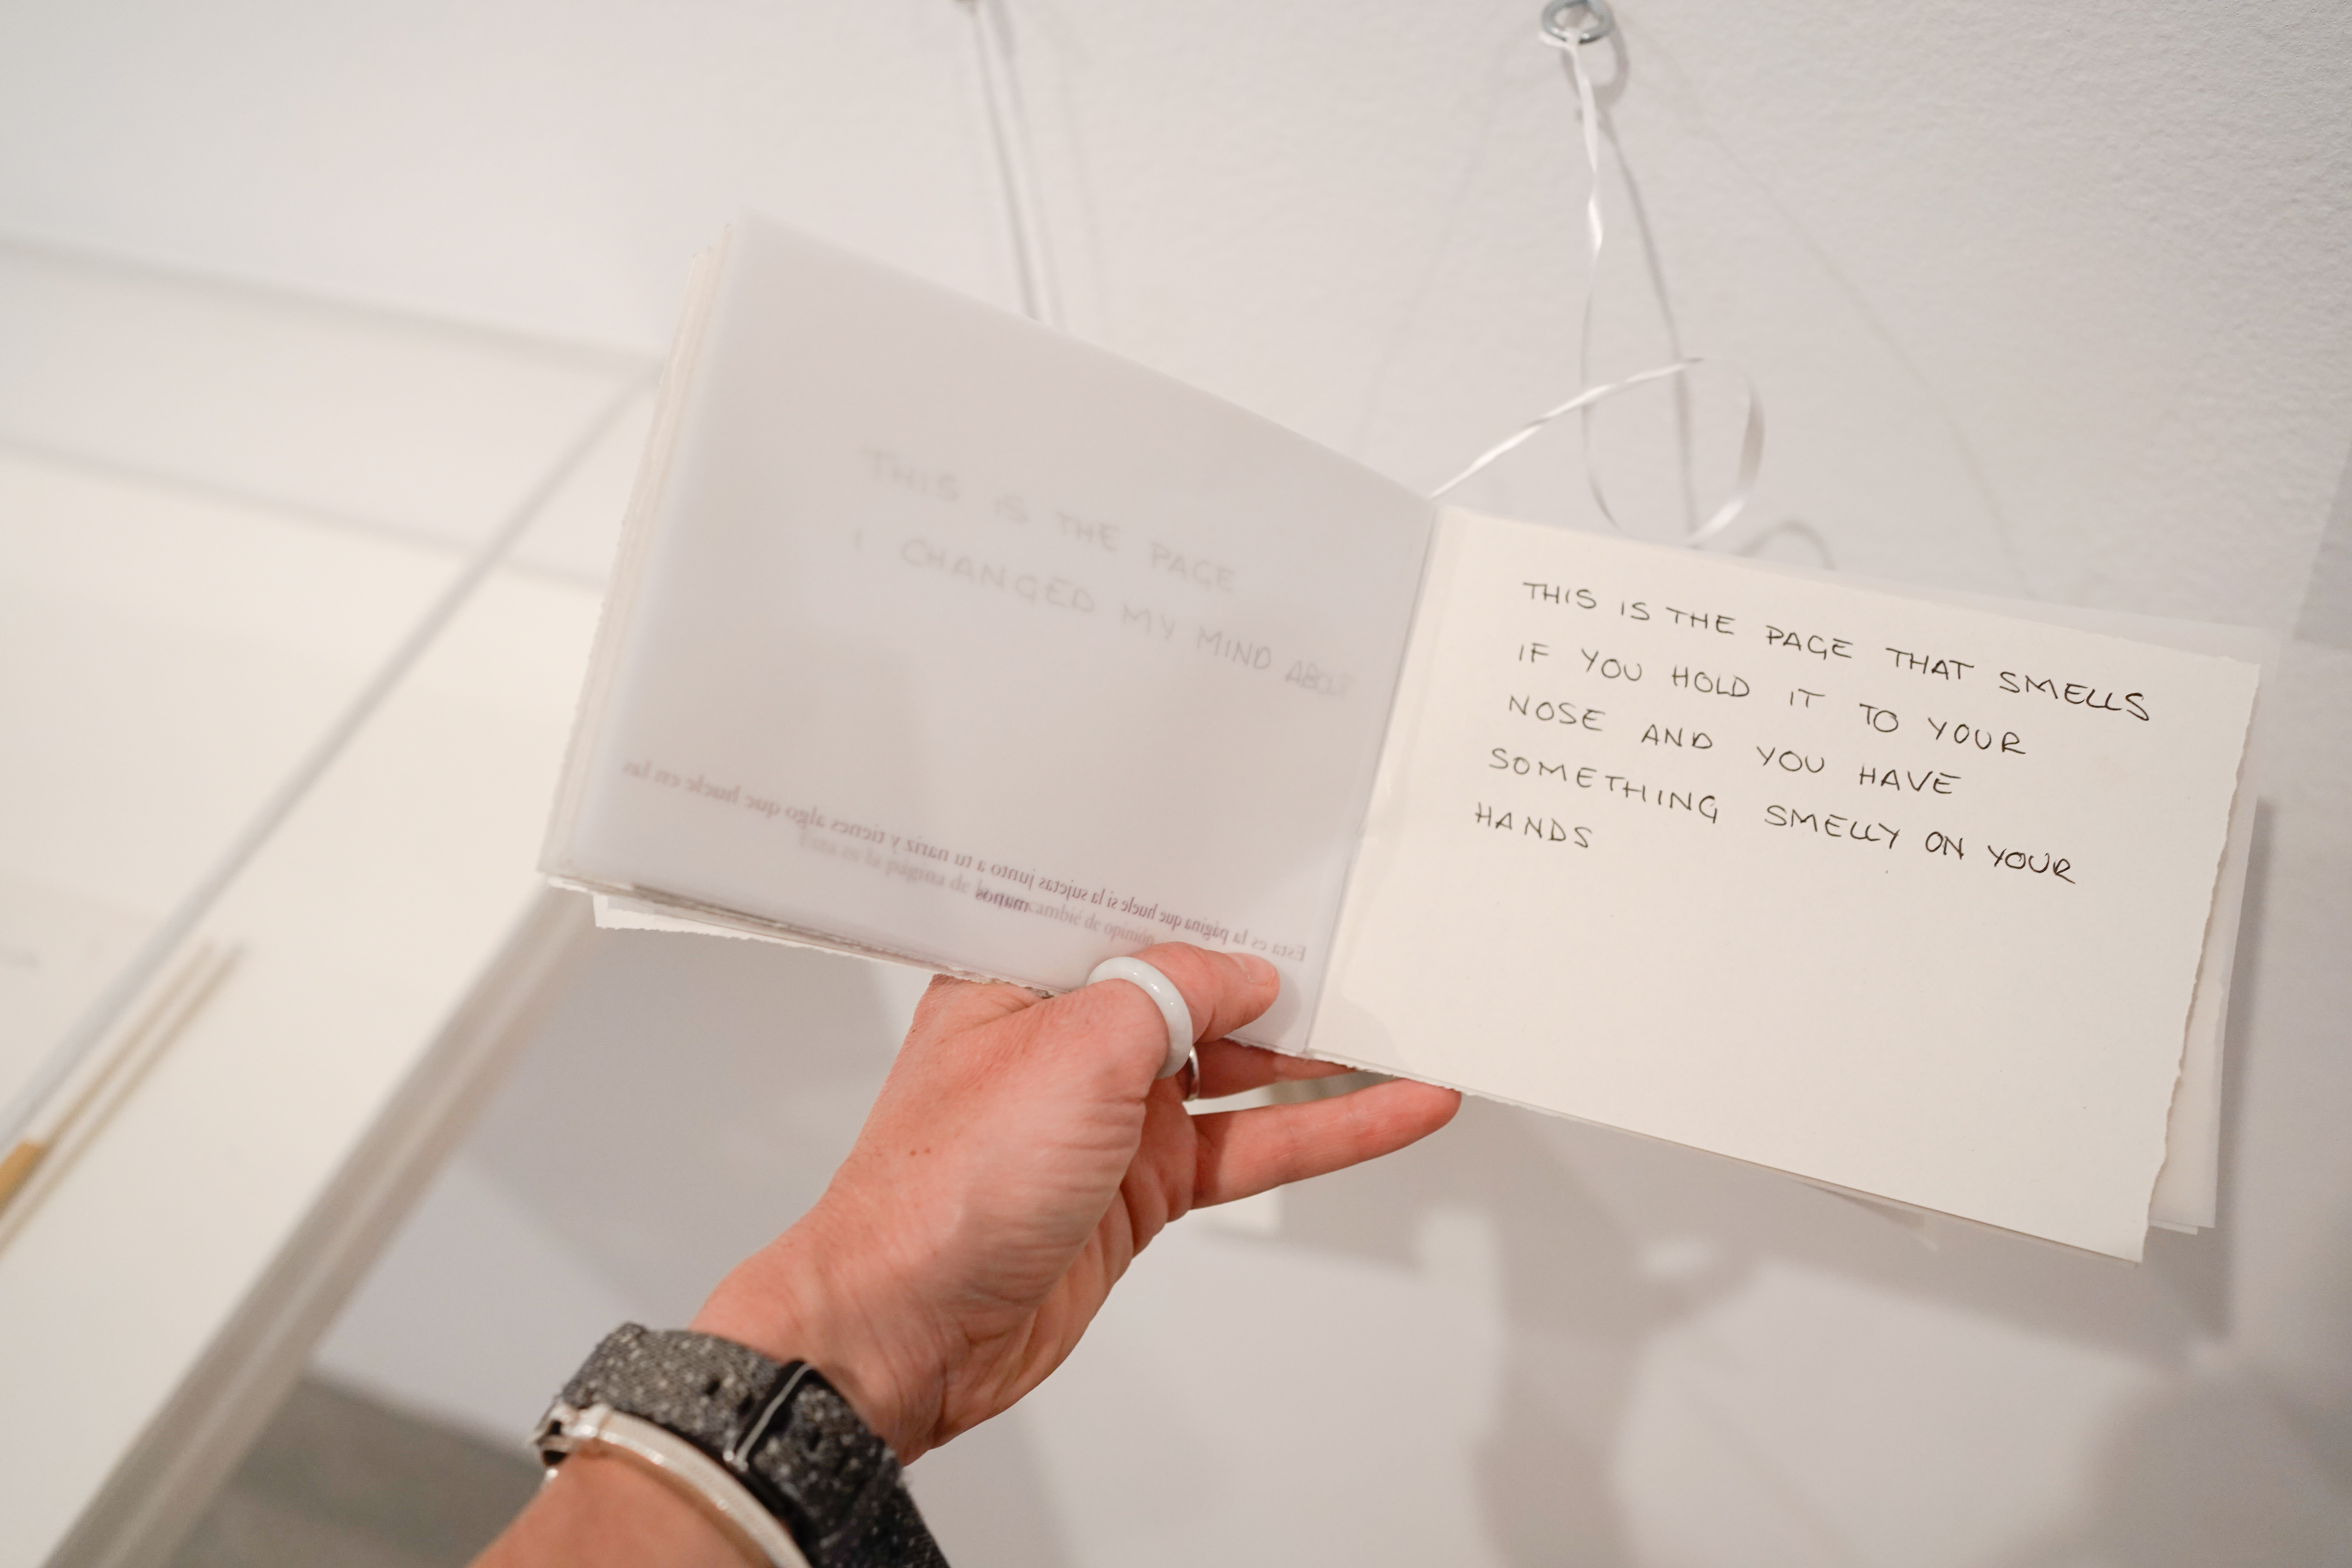 THIS IS THE PAGE
I CHANGED MY MIND ABOUT
Esta es la página que huele si la sujetas junto a tu nariz y tienes algo que huele en las
manos
Esta es la página de la cambié de opinión
THIS IS THE PAGE THAT SMELLS
IF YOU HOLD IT TO YOUR
NOSE AND YOU HAVE
SOMETHING SMELLY ON YOUR
HANDS